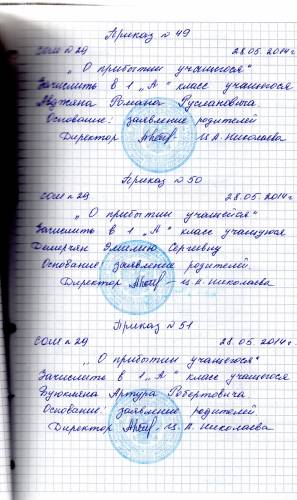 Приказ № 49
СОШ № 29 28.05.2014г
„О прибытии учащегося“
Зачислить в 1 „А“ класс учащегося
Романа Руслановича
Основание: заявление родителей
Директор И.А. Николаева
Приказ № 50
СОШ № 29 28.05.2014г
„О прибытии учащейся“
Зачислить в 1 „А“ класс учащуюся
Демирчян Эмилию Сергеевну
Основание: заявление родителей.
Директор – И.А. Николаева
Приказ № 51
СОШ № 29 28.05.2014г
„О прибытии учащегося“
Зачислить в 1 „А“ класс учащегося
Артура Робертовича
Основание: заявление родителей
Директор – И.А. Николаева